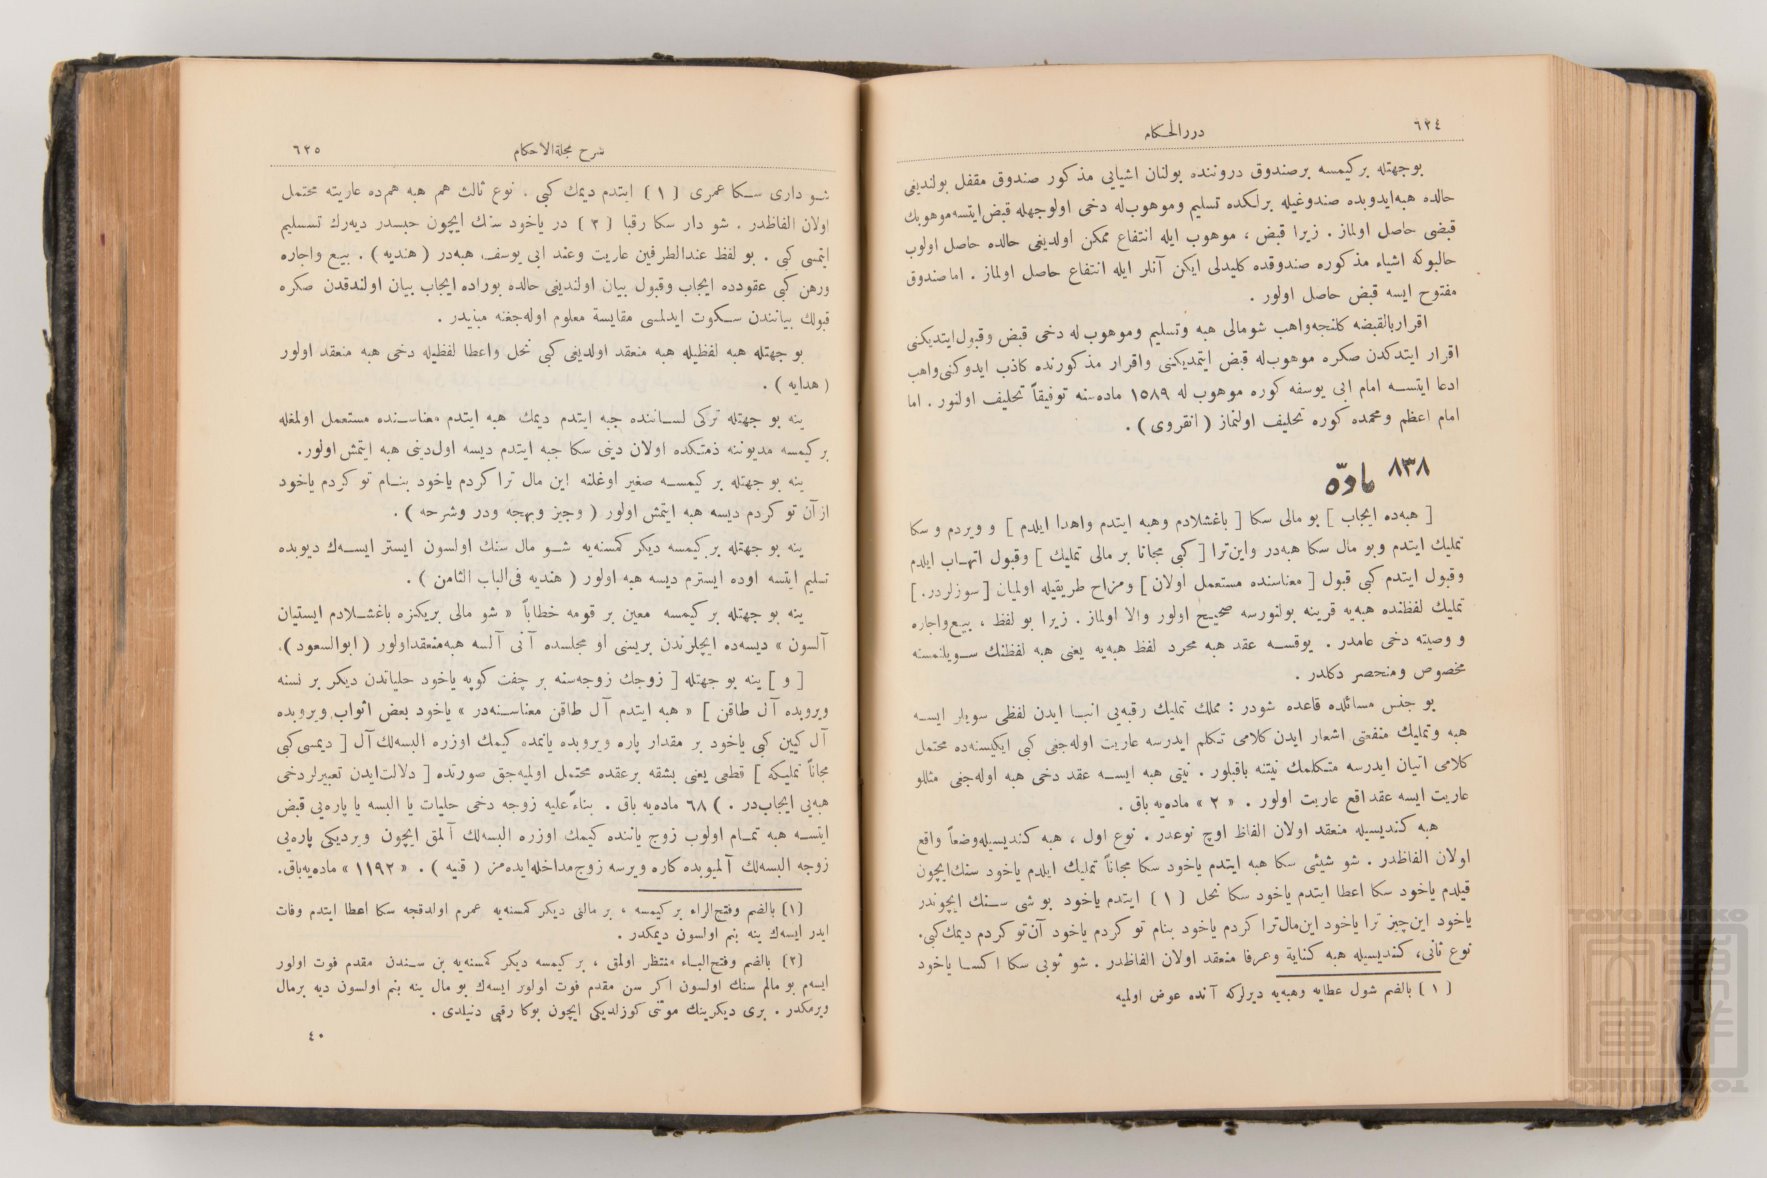 ٦٢٤
دررالحكام
بوجهتله بركيمسه برصندوق دروننده بولنان اشيايى مذكور صندوق مقفل بولنديغى
حالده هبه‌ايدوبده صندوغيله برلكده تسليم وموهوب‌له دخى اولوجهله قبض‌ايتسه‌موهوبك
قبضى حاصل اولماز . زيرا قبض ، موهوب ايله انتفاع ممكن اولديغى حالده حاصل اولوب
حالبوكه اشياء مذكوره صندوقده كليدلى ايكن آنلر ايله انتفاع حاصل اولماز . اماصندوق
مفتوح ايسه قبض حاصل اولور .
اقراربالقبضه كلنجه‌واهب شومالى هبه وتسليم وموهوب له دخى قبض وقبول‌ايتديكنى
اقرار ايتدكدن صكره موهوب‌له قبض ايتمديكنى واقرار مذكورنده كاذب ايدوكنى‌واهب
ادعا ايتسه امام ابى يوسفه كوره موهوب له ١٥٨٩ ماده‌سنه توفيقاً تحليف اولنور . اما
امام اعظم ومحمده كوره تحليف اولنماز ( انقروى ) .
٨٣٨ مادّه
[ هبه‌ده ايجاب ] بو مالى سكا [ باغشلادم وهبه ايتدم واهدا ايلدم ] و ويردم و سكا
تمليك ايتدم وبو مال سكا هبه‌در واين‌ترا [ كبى مجانا بر مالى تمليك ] وقبول اتهاب ايلدم
وقبول ايتدم كبى قبول [ معناسنده مستعمل اولان ] ومزاح طريقيله اولميان [ سوزلردر. ]
تمليك لفظنده هبه‌يه قرينه بولنورسه صحيح اولور والا اولماز . زيرا بو لفظ ، بيع‌واجاره
و وصيته دخى عامدر . يوقسه عقد هبه مجرد لفظ هبه‌يه يعنى هبه لفظنك سويلنمسنه
مخصوص ومنحصر دكلدر .
بو جنس مسائلده قاعده شودر : مملك تمليك رقبه‌يى انبا ايدن لفظى سويلر ايسه
هبه وتمليك منفعتى اشعار ايدن كلامى تكلم ايدرسه عاريت اوله‌جغى كبى ايكيسنه‌ده محتمل
كلامى اتيان ايدرسه متكلمك نيتنه باقيلور . نيتى هبه ايسه عقد دخى هبه اوله‌جغى مثللو
عاريت ايسه عقداقع عاريت اولور . « ٢ » ماده‌يه باق .
هبه كنديسيله منعقد اولان الفاظ اوچ نوعدر . نوع اول ، هبه كنديسيله‌وضعاً واقع
اولان الفاظدر . شو شيئى سكا هبه ايتدم ياخود سكا مجاناً تمليك ايلدم ياخود سنك‌ايچون
قيلدم ياخود سكا اعطا ايتدم ياخود سكا نحل ( ١ ) ايتدم ياخود بو شى سنك ايچوندر
ياخود اين‌چيز ترا ياخود اين‌مال‌ترا كردم ياخود بنام تو كردم ياخود آن‌تو كردم ديمك‌كبى.
نوع ثانى، كنديسيله هبه كناية وعرفا منعقد اولان الفاظدر . شو ثوبى سكا اكسا ياخود
( ١ ) بالضم شول عطايه وهبه‌يه ديرلركه آنده عوض اولميه
شرح مجلةالاحكام
٦٢٥
شو دارى سكا عمرى ( ١ ) ايتدم ديمك كبى . نوع ثالث هم هبه هم‌ده عاريته محتمل
اولان الفاظدر . شو دار سكا رقبا ( ٢ ) در ياخود سنك ايچون حبسدر ديه‌رك تسليم
ايتمسى كبى . بو لفظ عندالطرفين عاريت وعند ابى يوسف هبه‌در ( هنديه ) . بيع واجاره
ورهن كبى عقودده ايجاب وقبول بيان اولنديغى حالده بوراده ايجاب بيان اولندقدن صكره
قبولك بياننده‌ن سكوت ايدلمسى مقايسة معلوم اوله‌جغنه مبنيدر .
بو جهتله هبه لفظيله هبه منعقد اولديغى كبى نحل واعطا لفظيله دخى هبه منعقد اولور
( هدايه ) .
ينه بو جهتله تركى لساننده جبه ايتدم ديمك هبه ايتدم معناسنده مستعمل اولمغله
بر كيمسه مديوننه ذمتكده اولان دينى سكا جبه ايتدم ديسه اول‌دينى هبه ايتمش اولور.
ينه بو جهتله بر كيمسه صغير اوغلنه اين مال ترا كردم ياخود بنام تو كردم ياخود
ازآن تو كردم ديسه هبه ايتمش اولور ( وجيز وبهجه ودر وشرحه ) .
ينه بو جهتله بر كيمسه ديكر كمسنه‌يه شو مال سنك اولسون ايستر ايسه‌ك ديوبده
تسليم ايتسه اوده ايسترم ديسه هبه اولور ( هنديه فى‌الباب الثامن ) .
ينه بو جهتله بر كيمسه معين بر قومه خطاباً « شو مالى بريكزه باغشلادم ايستيان
آلسون » ديسه‌ده ايچلرندن بريسى او مجلسده آنى آلسه هبه‌منعقداولور ( ابوالسعود ).
[ و ] ينه بو جهتله [ زوجك زوجه‌سنه بر چفت كوپه ياخود حلياتدن ديكر بر نسنه
ويروبده آل طاقن ] « هبه ايتدم آل طاقن معناسنه‌در » ياخود بعض اثواب ويروبده
آل كيين كبى ياخود بر مقدار پاره ويروبده ياتمده كيمك اوزره البسه‌لك‌آل [ ديمسى‌كبى
مجاناً تمليكه ] قطعى يعنى بشقه برعقده محتمل اولميه‌جق صورتده [ دلالت‌ايدن تعبيرلردخى
هبه‌يى ايجاب‌در . ) ٦٨ ماده‌يه باق . بناءً‌عليه زوجه دخى حليات يا البسه يا پاره‌يى قبض
ايتسه هبه تمام اولوب زوج ياننده كيمك اوزره البسه‌لك آلمق ايچون ويرديكى پاره‌يى
زوجه البسه‌لك آلميوبده كاره ويرسه زوج‌مداخله‌ايده‌مز ( قنيه ) . « ١١٩٢ » ماده‌يه‌باق.
(١) بالضم وفتح‌الراء بر كيمسه ، بر مالنى ديكر كمسنه‌يه عمرم اولدقجه سكا اعطا ايتدم وفات
ايدر ايسه‌ك ينه بنم اولسون ديمكدر .
(٢) بالضم وفتح‌الباء منتظر اولمق ، بر كيمسه ديكر كمسنه‌يه بن سندن مقدم فوت اولور
ايسه‌م بو مالم سنك اولسون اكر سن مقدم فوت اولور ايسه‌ك بو مال ينه بنم اولسون ديه برمال
ويرمكدر . برى ديكرينك موتنى كوزلديكى ايچون بوكا رقبى دنيلدى .
٤٠
TOYO BUNKO
TOYO BUNKO